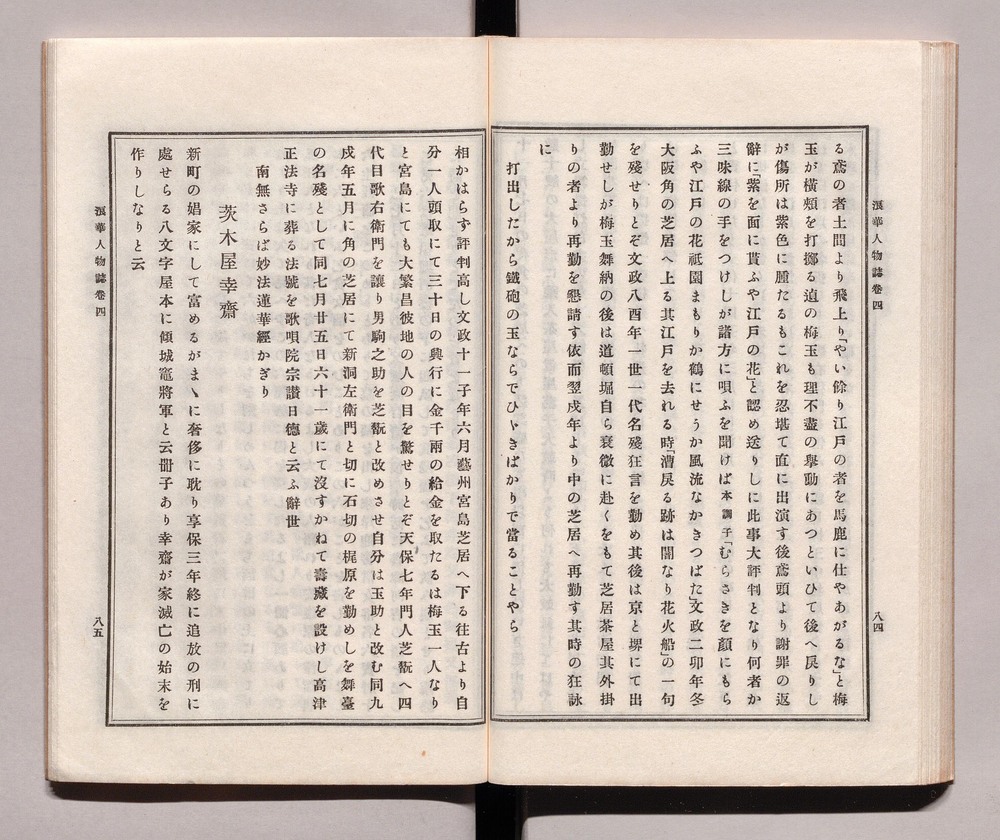 浪華人物誌卷四
八四
る鳶の者土間より飛上り「やい餘り江戸の者を馬鹿に仕やあがるな」と梅
玉が橫頰を打擲る追の梅玉も理不盡の擧動にあつといひて後へ戾りし
が傷所は紫色に腫たるもこれを忍堪て直に出演す後鳶頭より謝罪の返
辭に「紫を面に貰ふや江戸の花」と認め送りしに此事大評判となり何者か
三味線の手をつけしが諸方に唄ふを聞けば本調子「むらさきを顏にもら
ふや江戸の花祇園まもりか鶴にせうか風流なかきつばた」文政二卯年冬
大阪角の芝居へ上る其江戸を去れる時「漕戾る跡は闇なり花火船」の一句
を殘せりとぞ文政八酉年一世一代名殘狂言を勤め其後は京と堺にて出
勤せしが梅玉舞納の後は道頓堀自ら衰微に赴くをもて芝居茶屋其外掛
りの者より再勤を懇請す依而翌戌年より中の芝居へ再勤す其時の狂詠
に
打出したから鐵砲の玉ならでひゞきばかりで當ることやら
相かはらす評判高し文政十一子年六月藝州宮島芝居へ下る往古より自
分一人頭取にて三十日の興行に金千兩の給金を取たるは梅玉一人なり
と宮島にても大繁昌彼地の人の目を驚せりとぞ天保七年門人芝翫へ四
代目歌右衛門を讓り男駒之助を芝翫と改めさせ自分は玉助と改む同九
戌年五月に角の芝居にて新洞左衛門と切に石切の梶原を勤めしを舞臺
の名殘として同七月廿五日六十一歲にて沒すかねて壽藏を設けし高津
正法寺に葬る法號を歌唄院宗讃日德と云ふ辭世
南無さらば妙法蓮華經かぎり
茨木屋幸齋
新町の娼家にして富めるがまゝに奢侈に耽り享保三年終に追放の刑に
處せらる八文字屋本に傾城竈將軍と云册子あり幸齋が家滅亡の始末を
作りしなりと云
浪華人物誌卷四
八五